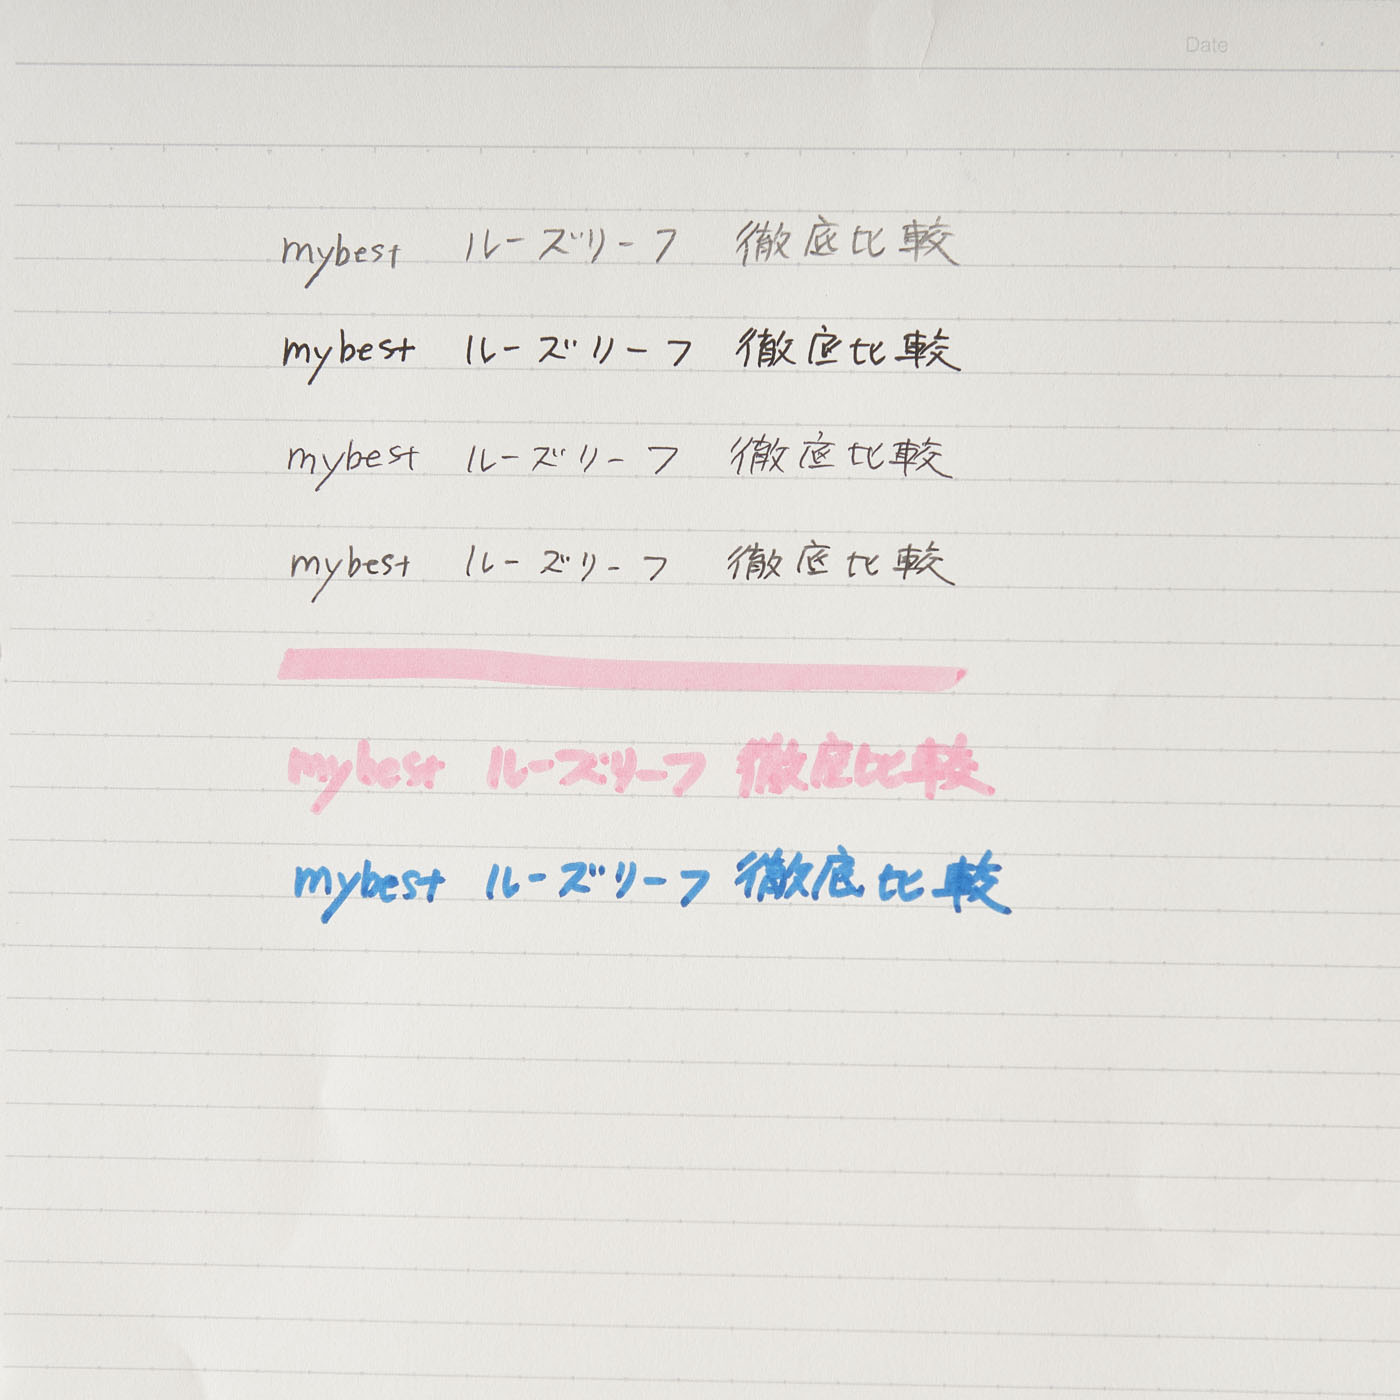 Date
mybest ルーズリーフ 徹底比較
mybest ルーズリーフ 徹底比較
mybest ルーズリーフ 徹底比較
mybest ルーズリーフ 徹底比較
mybest ルーズリーフ 徹底比較
mybest ルーズリーフ 徹底比較